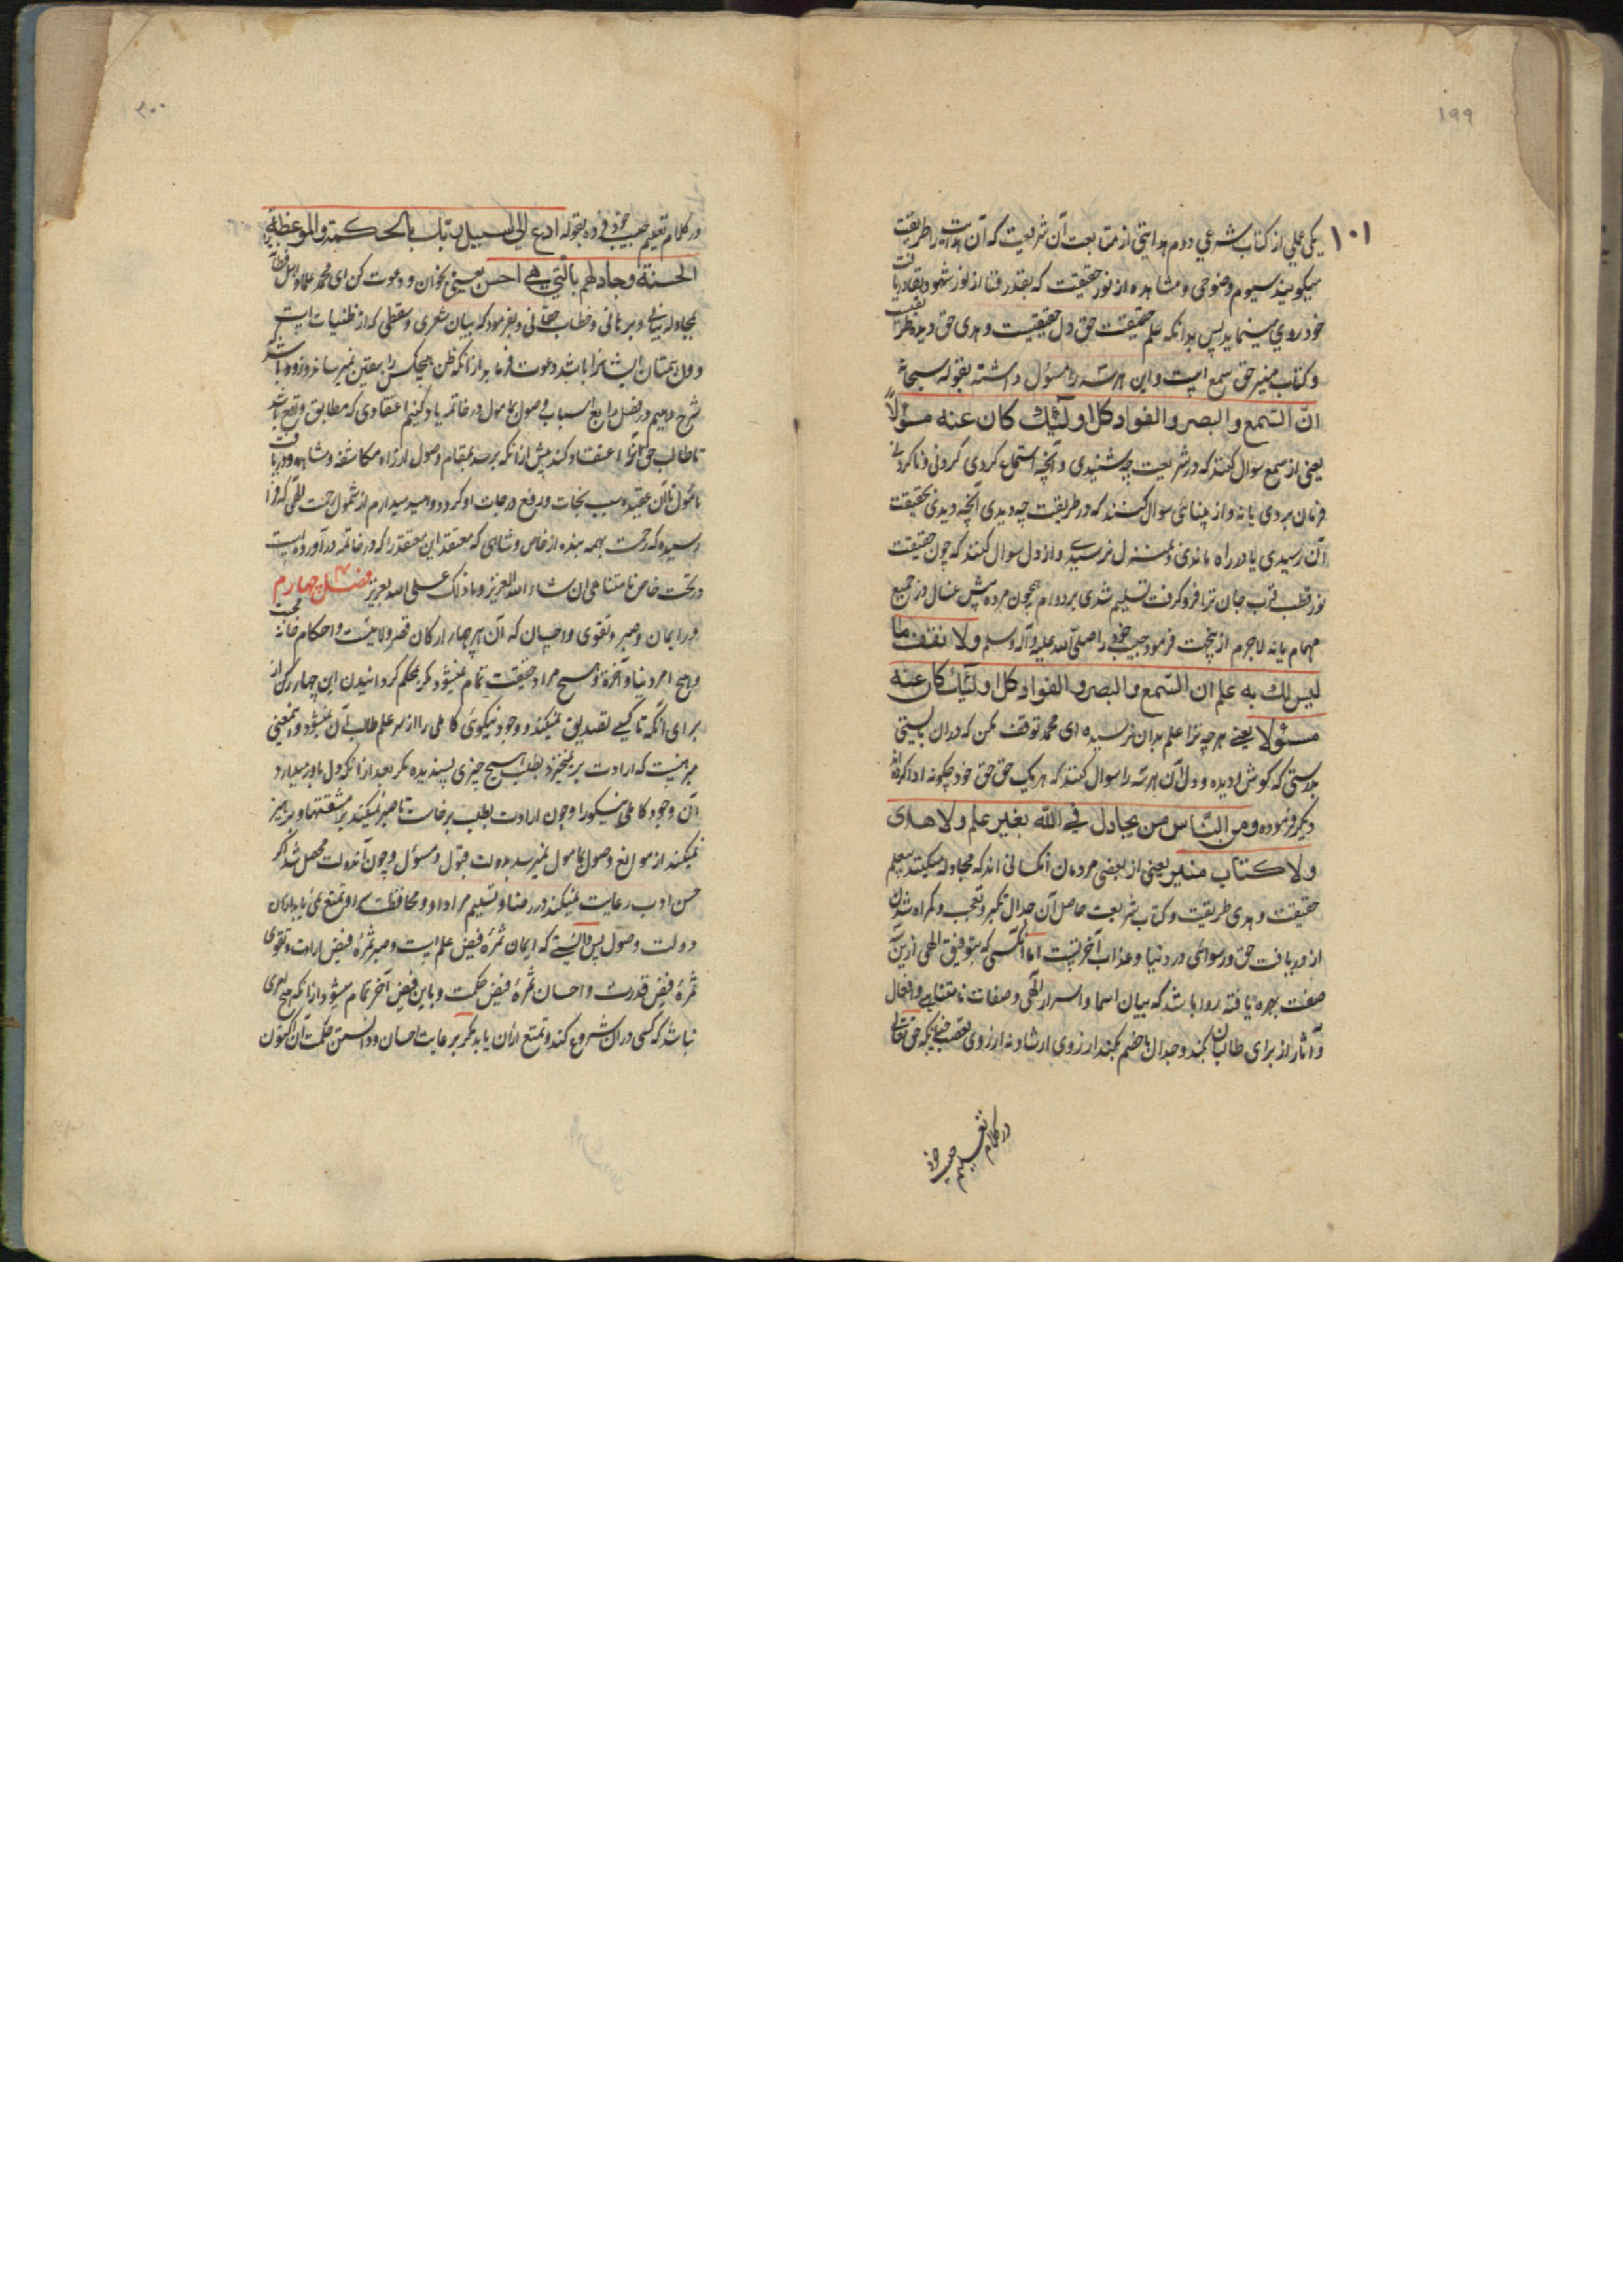 ۱۹۹
۱۰۱
یکی عملی از کتاب شرعی دوم هدایتی از متابعت آن شریعت که آن هدایت را طریقت
میگویند سیوم وضوحی و مشاهده از نور حقیقت که بقدر فنا از نور شهود و بقا دریافت
خود روی مینماید پس بدانکه علم حقیقت حق دل حقیقیست و هدی حق دیده طریقت
و کتاب منیر حق سمع است و این هر سه را مسئول داشته بقوله سبحانه
انّ السّمع والبصر والفواد کل اولئک کان عنه مسؤلاً
یعنی از سمع سوال کنند که در شریعت چه شنیدی و آنچه استماع کردی کردنی و ناکردنی
فرمان بردی یا نه و از بینائی سوال کنند که در طریقت چه دیدی آنچه دیدی بحقیقت
آن رسیدی یا در راه ماندی و بمنزل نرسیدی و از دل سوال کنند که چون حقیقت
نور قطب قرب جان ترا فرو گرفت تسلیم شدی بر دوام همچون مرده پیش غسال در جمیع
مهمام یا نه لاجرم ازینجهت فرمود حبیب خود را صلی الله علیه وآله وسلم ولا تقف ما
لیس لک به علم ان السّمع والبصر والفواد کل اولئک کان عنه
مسئولا یعنی هر چه ترا علم بدان نرسیده ای محمد توقف مکن که در ان بایستی
بدرستی که گوش و دیده و دل آن هر سه را سوال کنند که هر یک حق حق خود چگونه ادا کرده
دیگر فرموده ومن النّاس من یجادل فی الله بغیر علم ولا هدی
ولا کتاب منیر یعنی از بعضی مردمان آنکسانی اند که مجادله میکنند بیعلم
حقیقت و هدی طریقت و کتاب شریعت حاصل آن جدال تکبر و تعجب و گمراه شدن
از دریافت حق و رسوائی در دنیا و عذاب آخرتست اما آنکسی که بتوفیق الهی ازین سه
صفت بهره یافته روا باشد که بیان اسما و اسرار الهی و صفات نامتناهی و افعال
و آثار از برای طالبان کند و جدال با خصم کند از روی ارشاد نه از روی تعصب چنانکه حق تعالی
در کلام تعلیم حبیب خود
۲۰۰
در کلام تعلیم حبیب خود فرموده بقوله ادع الی سبیل ربّک بالحکمة والموعظة
الحسنة وجادلهم بالّتی هی احسن یعنی بخوان و دعوت کن ای محمد علما و اهل
بمجادله بیانی و برهانی و خطاب حقانی و بفرمود که بیان شعری و سقطی که از ظنیات است
دعوت فرماید از انکه ظن هیچکس را بیقین نمیرساند
شرح دهیم در فصل رابع اسباب وصول بمامول در خاتمه یاد کنیم اعتقادی که مطابق واقع باشد
تا طالب حق آنرا اعتقاد کند پیش از انکه برسد بمقام وصول از راه مکاشفه و مشاهده و دریافت
مامول تا آن عقیده سبب نجات و رفع درجات او گردد و امید میدارم از شمول رحمت الهی
رسیده که رحمت بهمه بنده از خاص و شاملی که معتقد این معتقد را که در خاتمه درآورده است
در تحت خاص نامتناهی ان شاء الله العزیز وما ذلک علی الله بعزیز فصل چهارم
در ایمان و صبر و تقوی و احسان که آن هر چهار ارکان قصر ولایتست و احکام خانه محبت
و هیچ امر دنیا و آخرة و هیچ مراد حقیقت تمام نمیشود مگر بمحکم گردانیدن این چهار رکن از
برای آنکه تا کسی تصدیق نمیکند وجود نیکوئی کاملی را از سر علم طالب آن نمیشود و یقینی
مبرهنست که ارادت برنمیخیزد بطلب هیچ چیزی پسندیده مگر بعد از انکه دل باور میدارد
آن وجود کاملی نیکو را و چون ارادت بطلب برخاست تا صبر نمیکند بر مشقتها و پرهیز
نمیکند از موانع وصول بمامول نمیرسد بدولت قبول و مسؤل و چون آن دولت محصل شد اگر
حسن ادب رعایت نمیکند در رضا و تسلیم مراد او و محافظت سر او تمتع نمی یابد ازان
دولت وصول پس دانستی که ایمان ثمرهٔ فیض علم است و صبر ثمرهٔ فیض ارادت و تقوی
ثمرهٔ فیض قدرت و احسان ثمرهٔ فیض حکمت و باین فیض آخر تمام میشود از انکه هیچ امری
نباشد که کسی در ان شروع کند و تمتع ازان یابد مگر برعایت احسان و دانستن حکمت آن